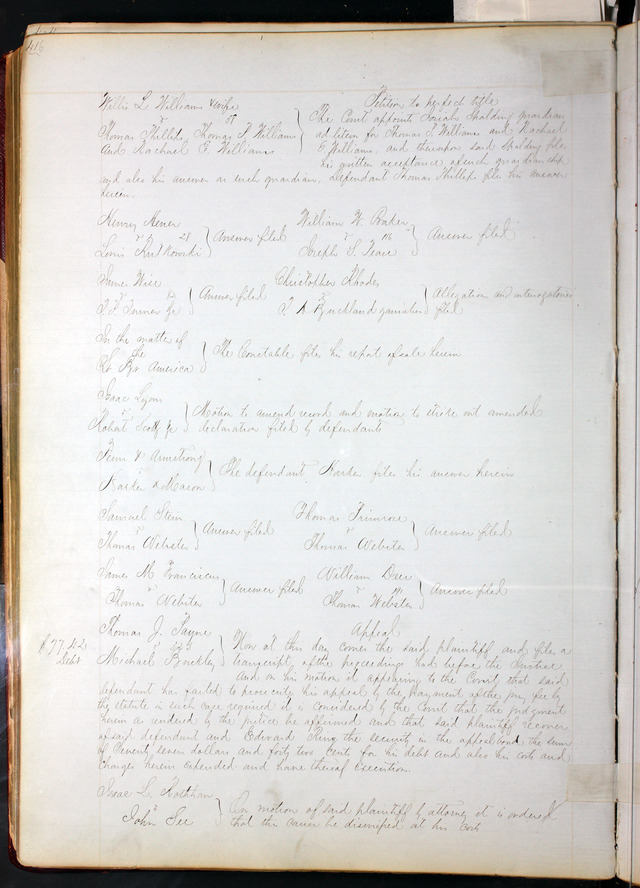 416
Willis L. Williams & wife Petition to perfect title
vs 57 The Court appoints Josiah Spalding guardian
Thomas Phillips, Thomas F. Williams ad litem for Thomas F. Williams and Rachael
and Rachael E. Williams E. Williams, and thereupon said Spalding files
his written acceptance of such guardianship
and also his answer as such guardian. Defendant Thomas Phillips files his answer
herein.
Henry William W. Baker
vs 28 Answer filed vs 116 Answer filed
Louis Rutkowski Joseph S. Pease
James Wise Christopher Rhodes
vs Answer filed vs Allegations and interrogatories
Turner Jr T. A. Buckland garnishee filed
In the matter of
the The Constable files his report of sale herein
St. Br. America
Isaac Lyon
vs Motion to amend record and motion to strike out amended
Robert Scott Jr declaration filed by defendants
& Armstrong
vs The defendant files his answer herein
& Mason
Samuel Stein Thomas Primrose
vs Answer filed vs Answer filed
Thomas Webster Thomas Webster
James M. Franciscus William Deer
vs Answer filed vs Answer filed
Thomas Webster Thomas Webster
Thomas J. Payne Appeal
$77.42 vs Now at this day comes the said plaintiff and files a
Debt Michael Buckley transcript of the proceedings had before the Justice
and on his motion it appearing to the Court that said
defendant has failed to prosecute his appeal by the payment of the jury fee by
the statute in such case required it is considered by the Court that the judgment
herein as rendered by the justice be affirmed and that said plaintiff recover
of said defendant and Edward the security in the appeal bond the sum
of Seventy seven dollars and forty two cents for his debt and also his costs and
charges herein expended and have thereof execution.
Isaac L.
vs On motion of said plaintiff by attorney it is ordered
John See that this cause be dismissed at his cost